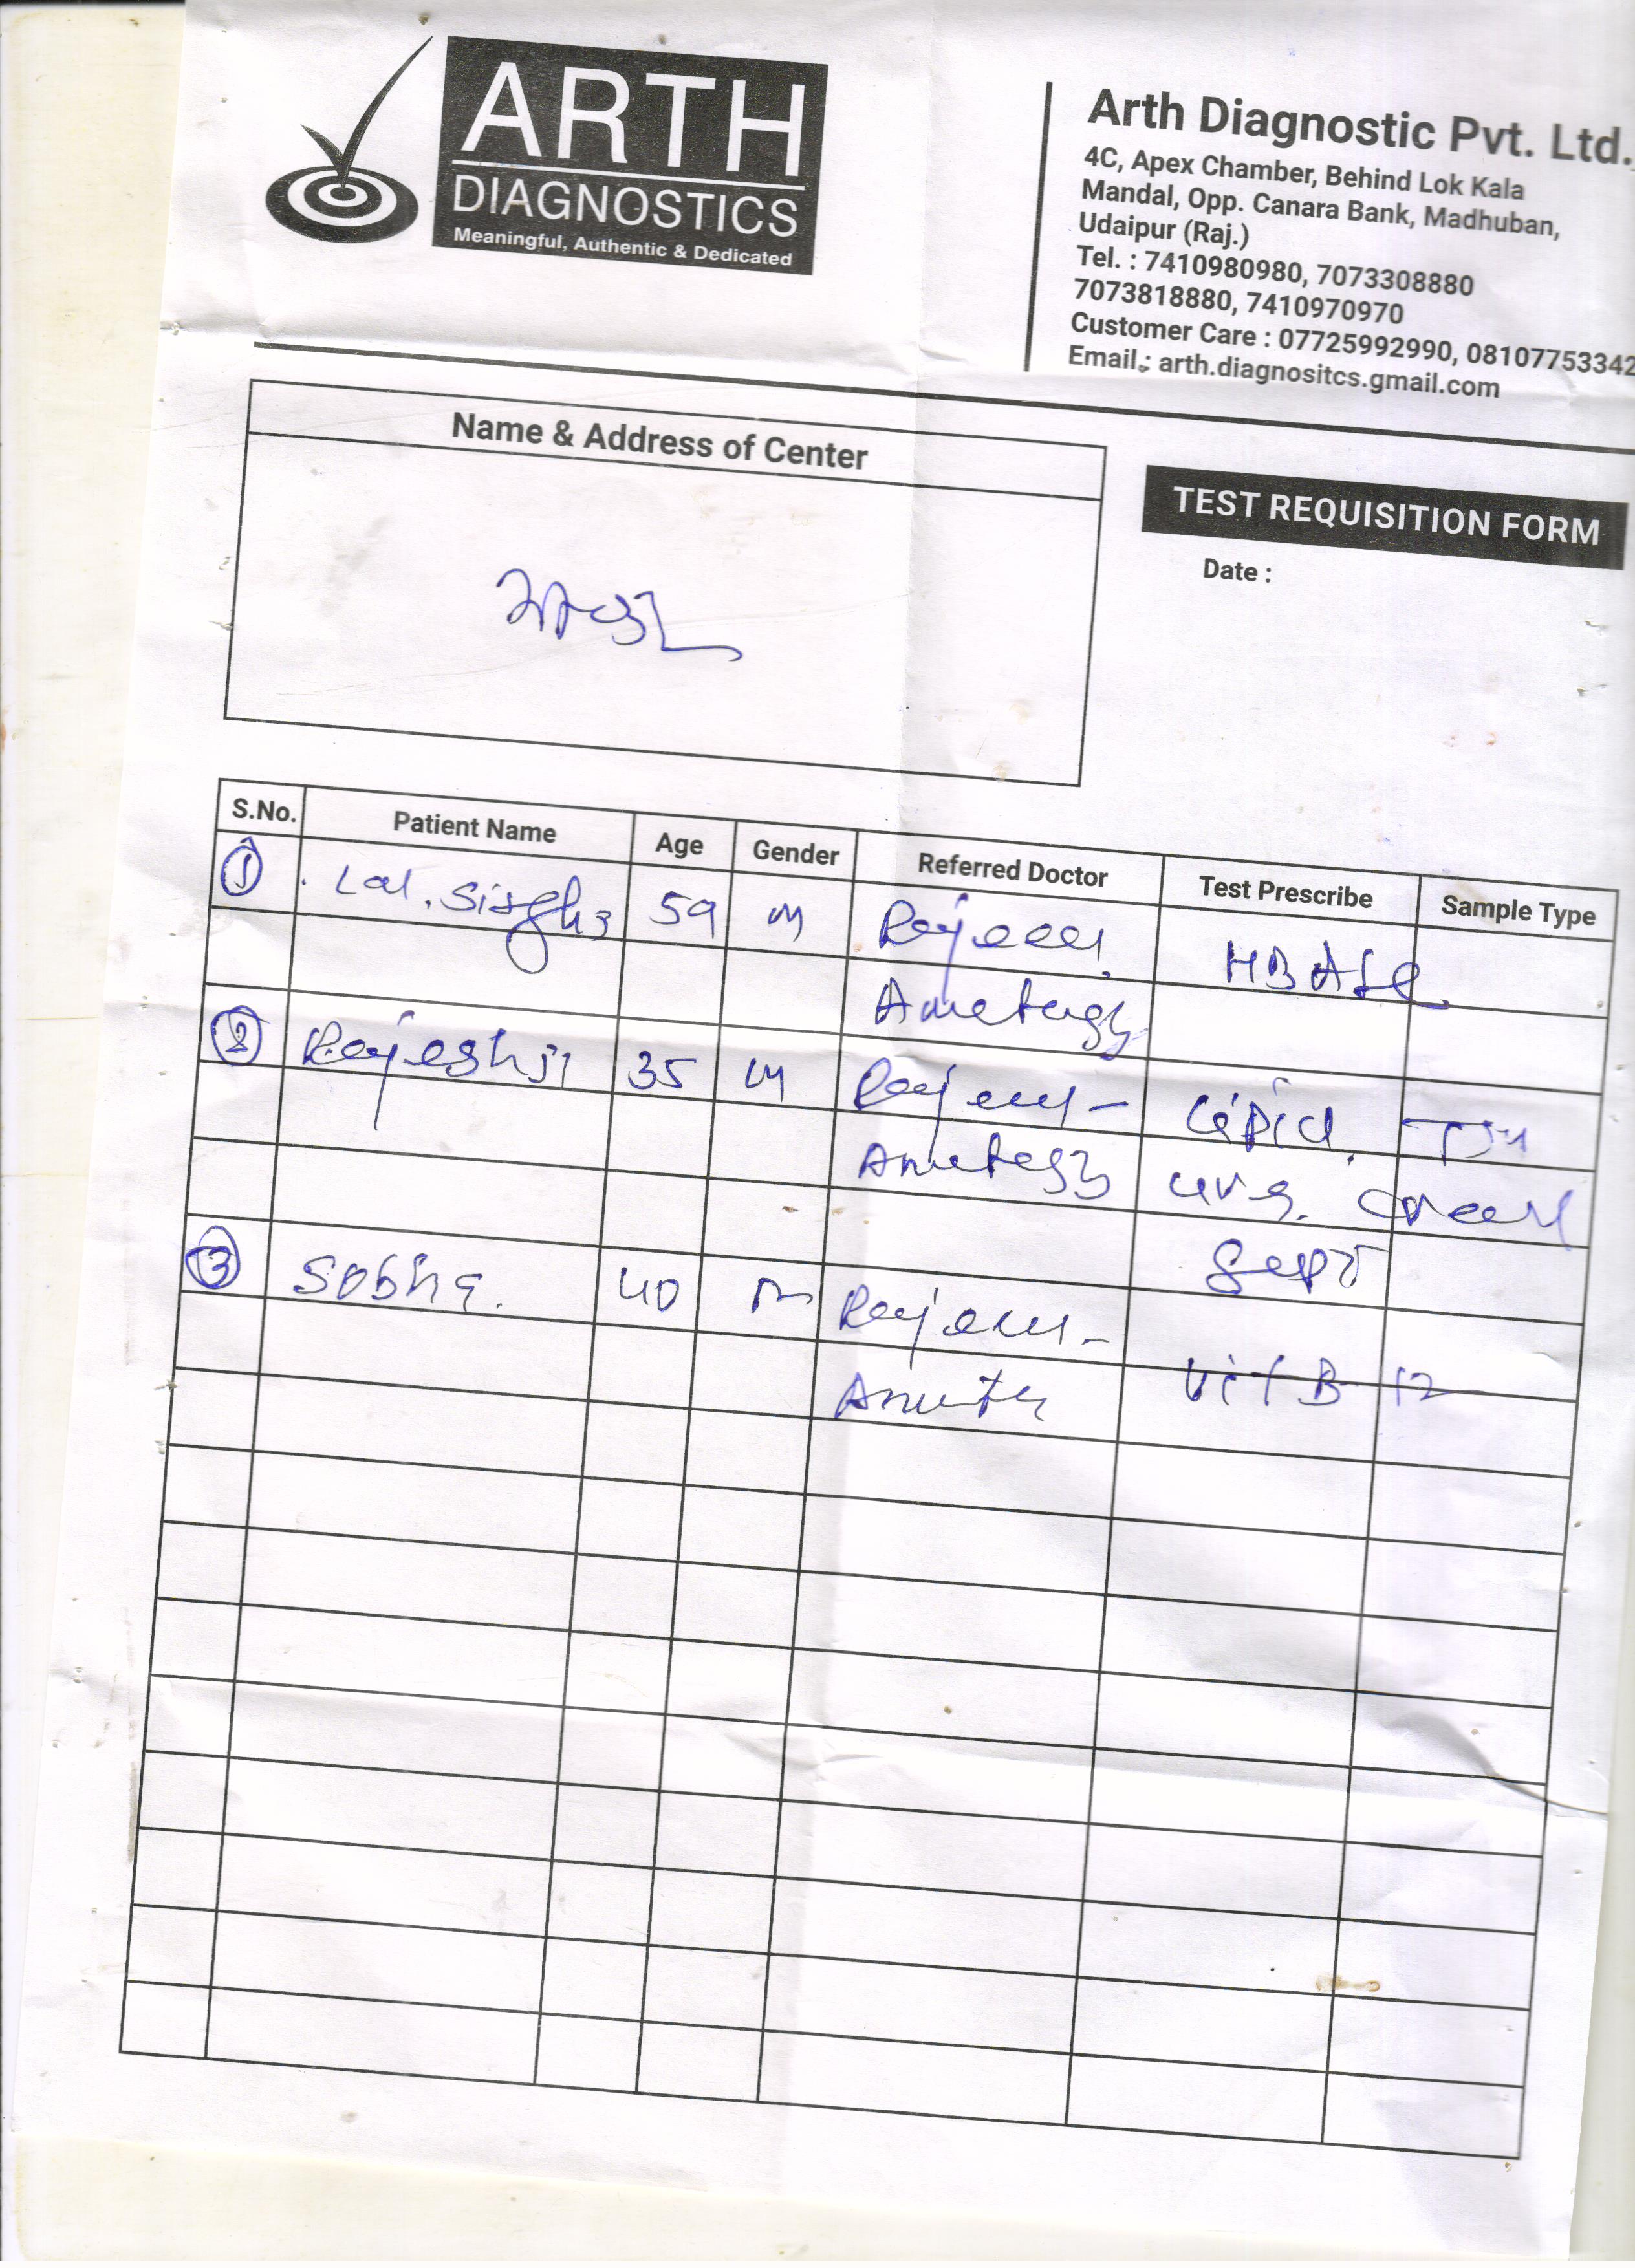 ARTH
DIAGNOSTICS
Meaningful, Authentic & Dedicated
Arth Diagnostic Pvt. Ltd.
4C, Apex Chamber, Behind Lok Kala
Mandal, Opp. Canara Bank, Madhuban,
Udaipur (Raj.)
Tel. : 7410980980, 7073308880
7073818880, 7410970970
Customer Care : 07725992990, 08107753342
Email.: arth.diagnositcs.gmail.com
Name & Address of Center
TEST REQUISITION FORM
Date :
S.No. Patient Name Age Gender Referred Doctor Test Prescribe Sample Type
1 Lal. Singh 59 M HBA1C
2 Rajesh ji 35 M Lipid. TSH
3 Sobha. 40
Vit B 12